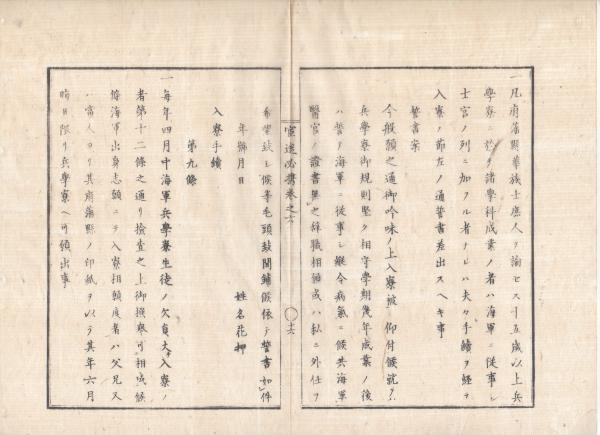 一凡府藩縣華族士庶人ヲ論セス十五歳以上兵
學寮ニ於テ諸學科成業ノ者ハ海軍ニ從事シ
士官ノ列ニ加フル者ナレハ夫々手續ヲ經テ
入寮ノ節左ノ通誓書差出スヘキ事
誓書案
今般願之通御吟味ノ上入寮被仰付候就テ
兵學寮御規則堅ク相守學期幾年成業ノ後
ハ誓テ海軍ニ從事シ縱令病氣ニ候共海軍
醫官ノ證書無之辭職相願或ハ私ニ外仕ヲ
官途必携卷之六
十六
希望致シ候等毛頭致間鋪候依テ誓書如件
年號月日
姓名花押
入寮手續
第九條
一每年四月中海軍兵學寮生徒ノ欠員入寮ノ
者第十二條之通リ撿査之上御撰擧可相成候
條海軍出身志願ニテ入寮相願度者ハ父兄又
ハ當人ヨリ其府藩縣ノ印紙ヲ以テ其年六月
晦日限リ兵學寮ヘ可願出事